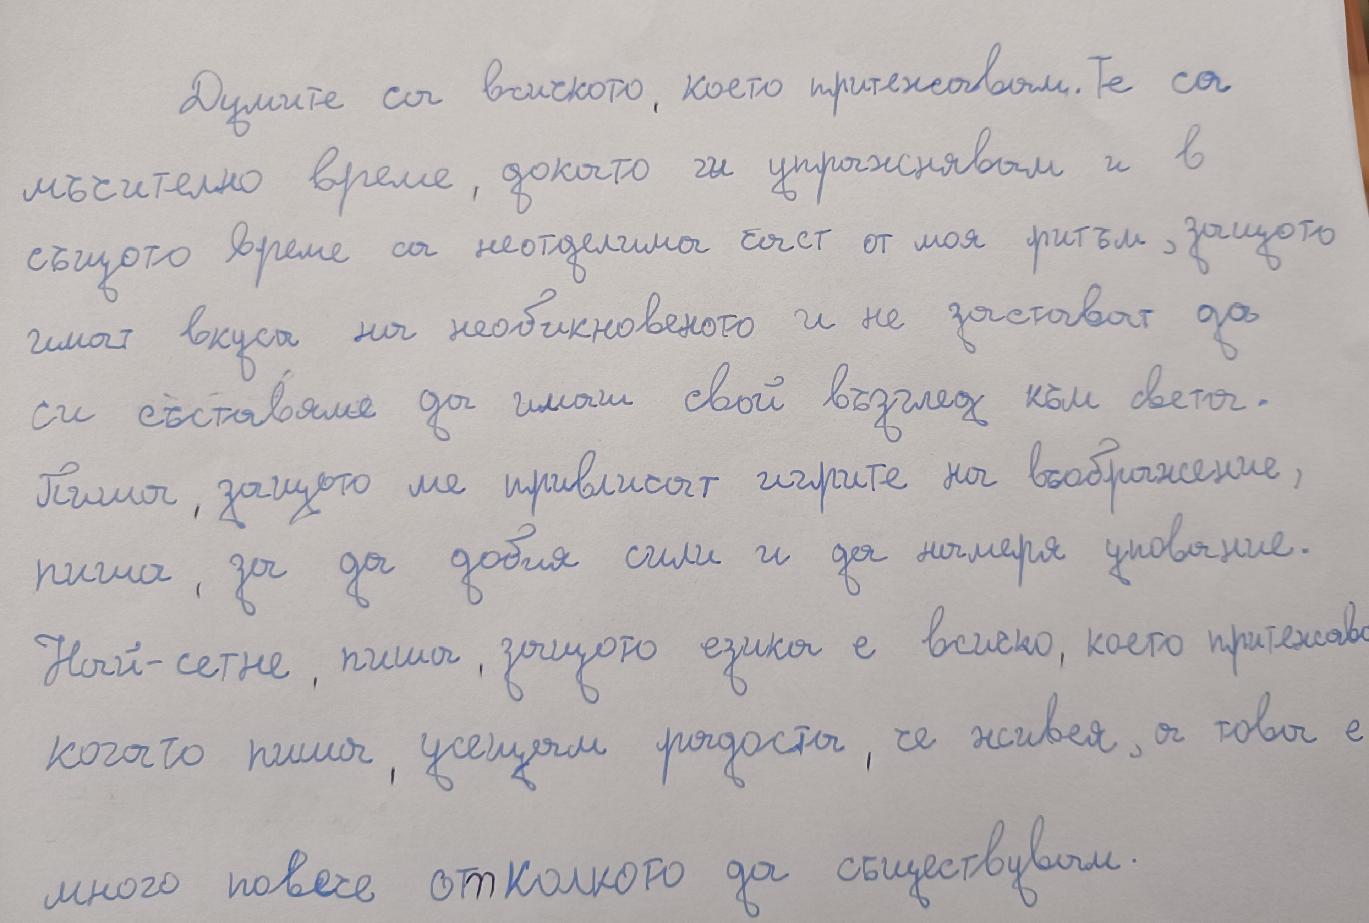 Думите са всичкото, което притежавам. Те са
мъчително време, докато ги упражнявам и в
същото време са неотделима част от моя ритъм, защото
имат вкуса на необикновеното и не застават да
си съставяме да имаш свой възглед към света.
Пиша, защото ме привличат игрите на въображение,
пиша, за да добия сили и да намеря упование.
Най-сетне, пиша, защото езика е всичко, което притежава
когато пиша, усещам радостта, че живея, а това е
много повече отколкото да съществувам.